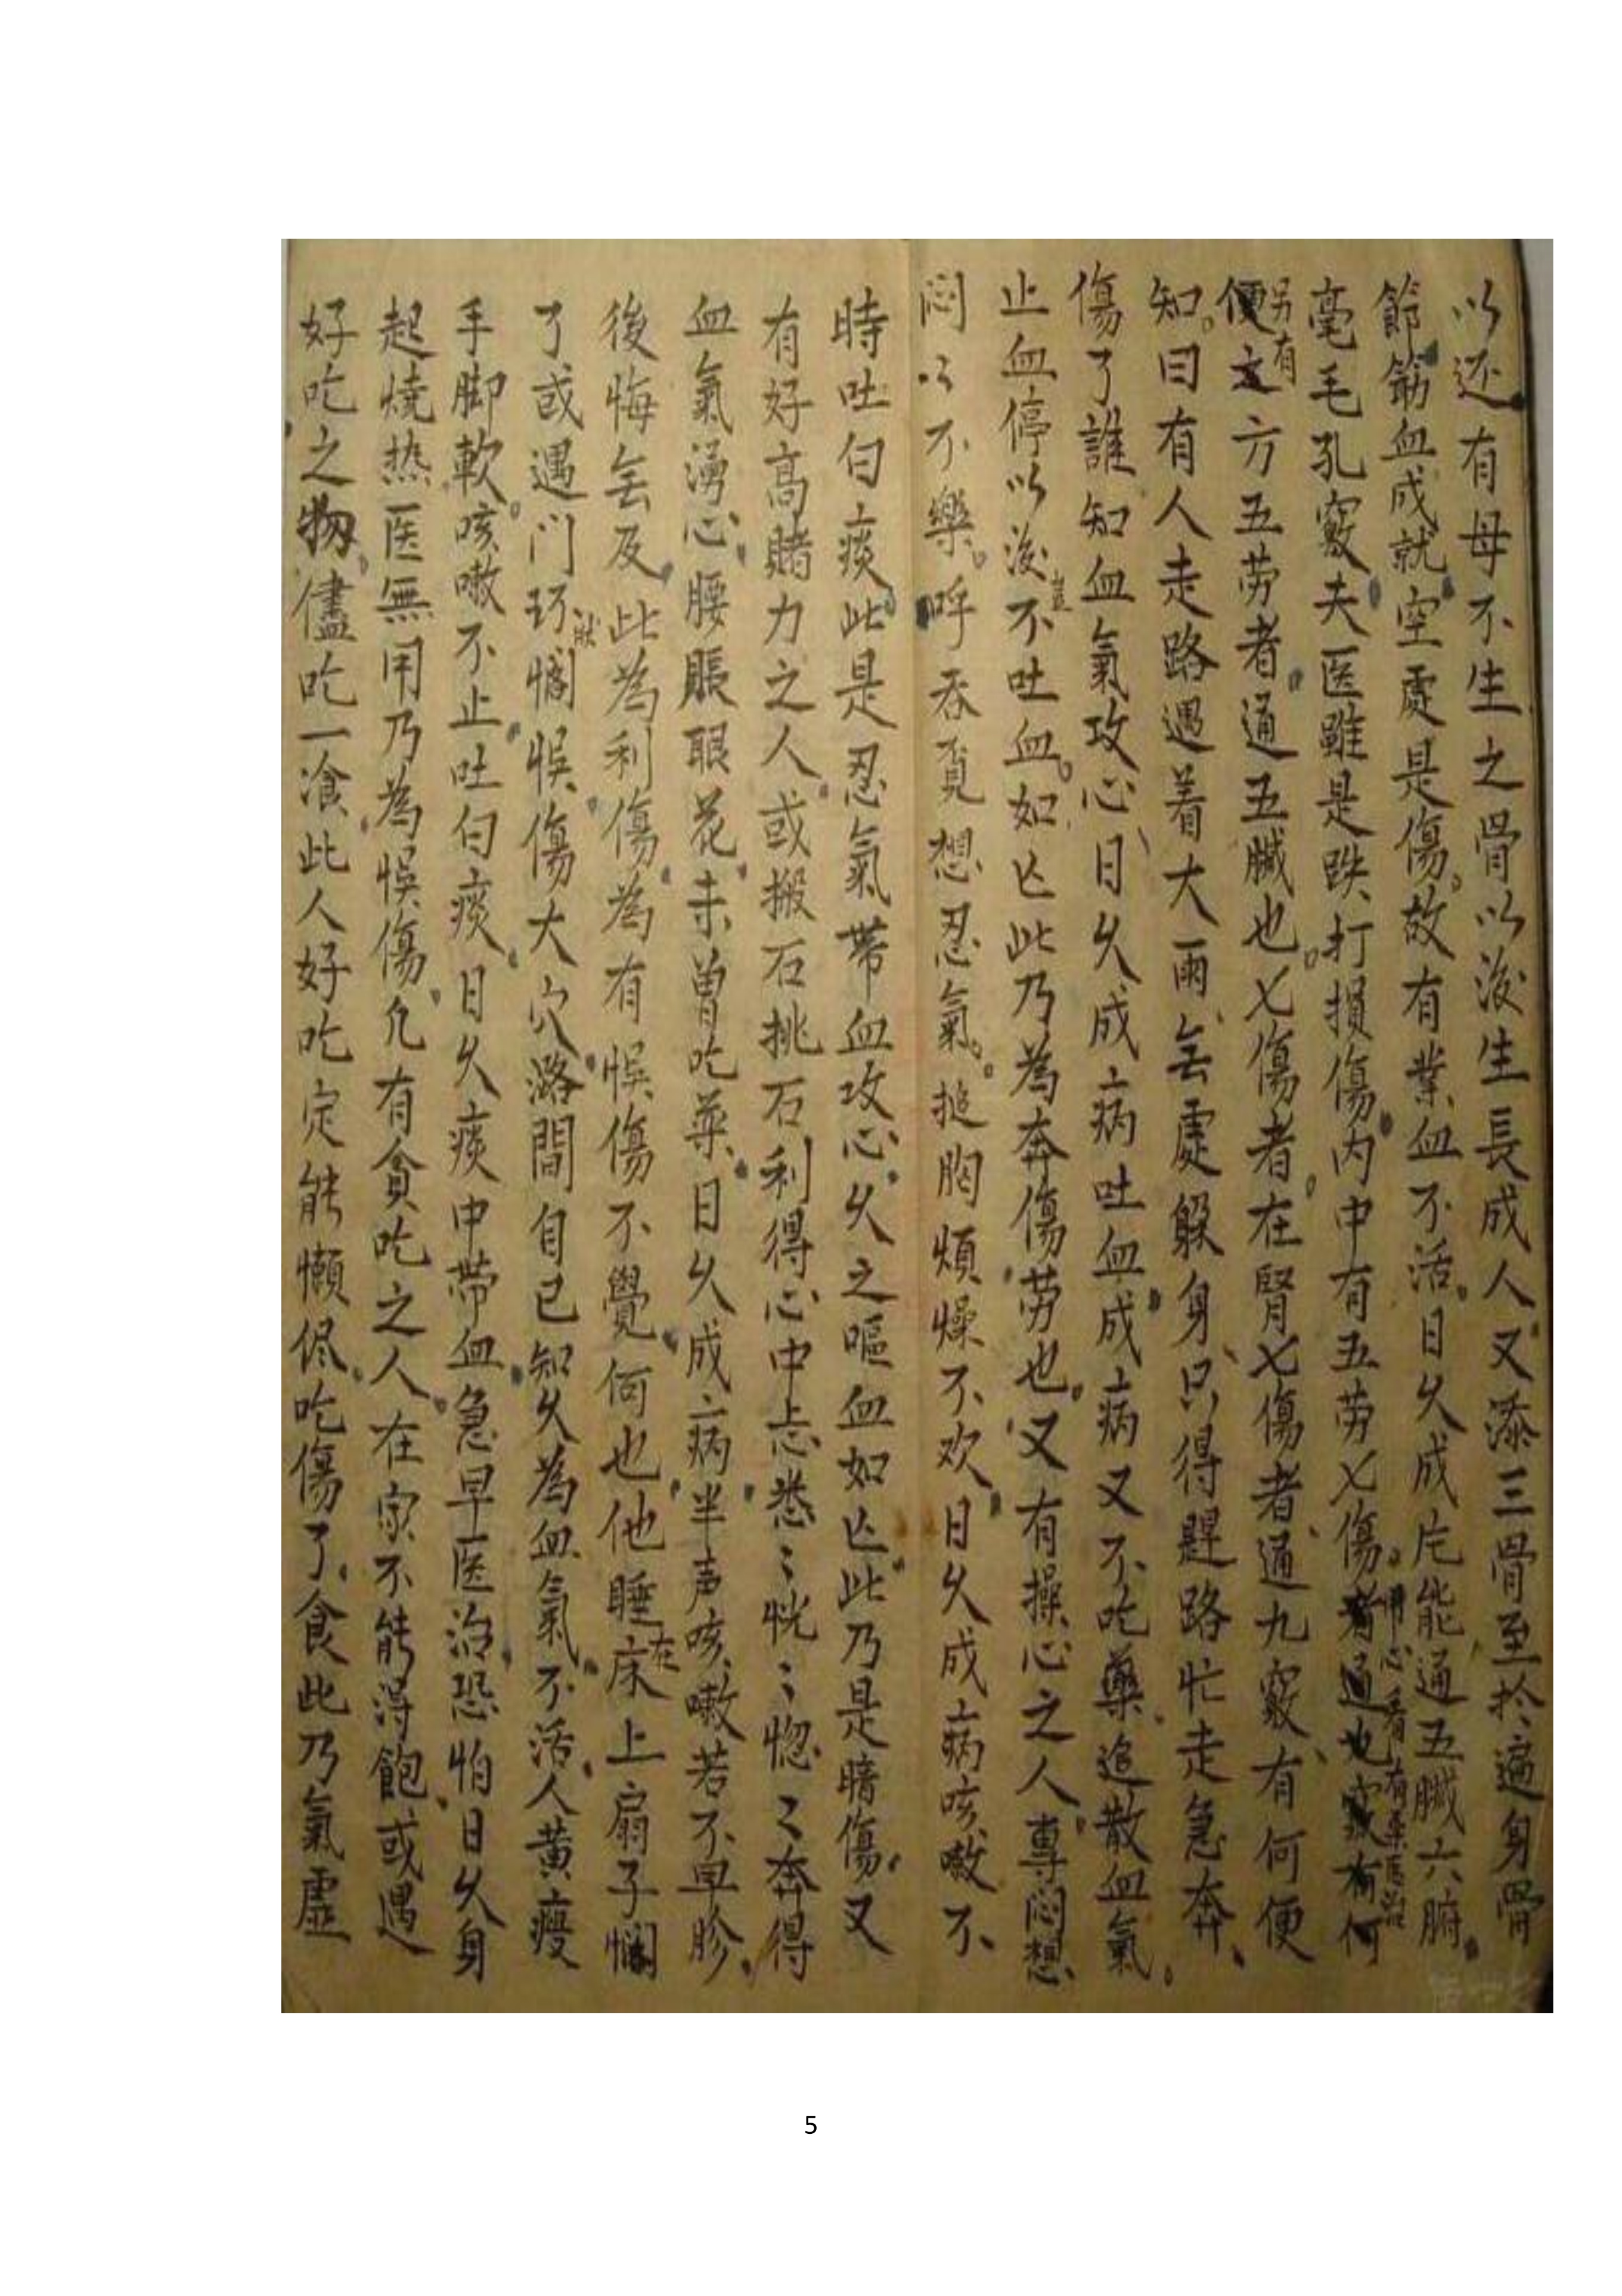 以还有母不生之骨以後生長成人又添三骨至於遍身骨
節筋血成就空處是傷故有業血不活日久成片能通五臟六腑
毫毛孔竅夫医雖是跌打損傷内中有五劳七傷者通也竅有何
另有
便方五劳者通五臟也七傷者在腎七傷者通九竅有何便
知曰有人走路遇着大雨無處躱身只得趕路忙走急奔
傷了誰知血氣攻心日久成病吐血成病又不吃藥追散血氣
止血停以後豈不吐血如亡此乃為奔傷劳也又有操心之人專悶想
悶々不樂呼吞覓想忍氣搥胸煩燥不欢日久成病咳嗽不
時吐白痰此是忍氣帶血攻心久之嘔血如亡此乃是暗傷又
有好高賭力之人或搬石挑石利得心中忐恙々恍々惚々奔得
血氣湧心腰脹眼花未曾吃藥日久成病半声咳嗽若不早胗
後悔無及此為利傷為有悞傷不覺何也他睡在床上扇子
了或遇门悞傷大穴路間自己知久為血氣不活人黄瘦
手脚軟咳嗽不止吐白痰日久痰中帶血急早医治恐怕日久身
起燒热医無用乃為悞傷凢有貪吃之人在家不能得飽或遇
好吃之物儘吃一湌此人好吃定能懶侭吃傷了食此乃氣虛
5